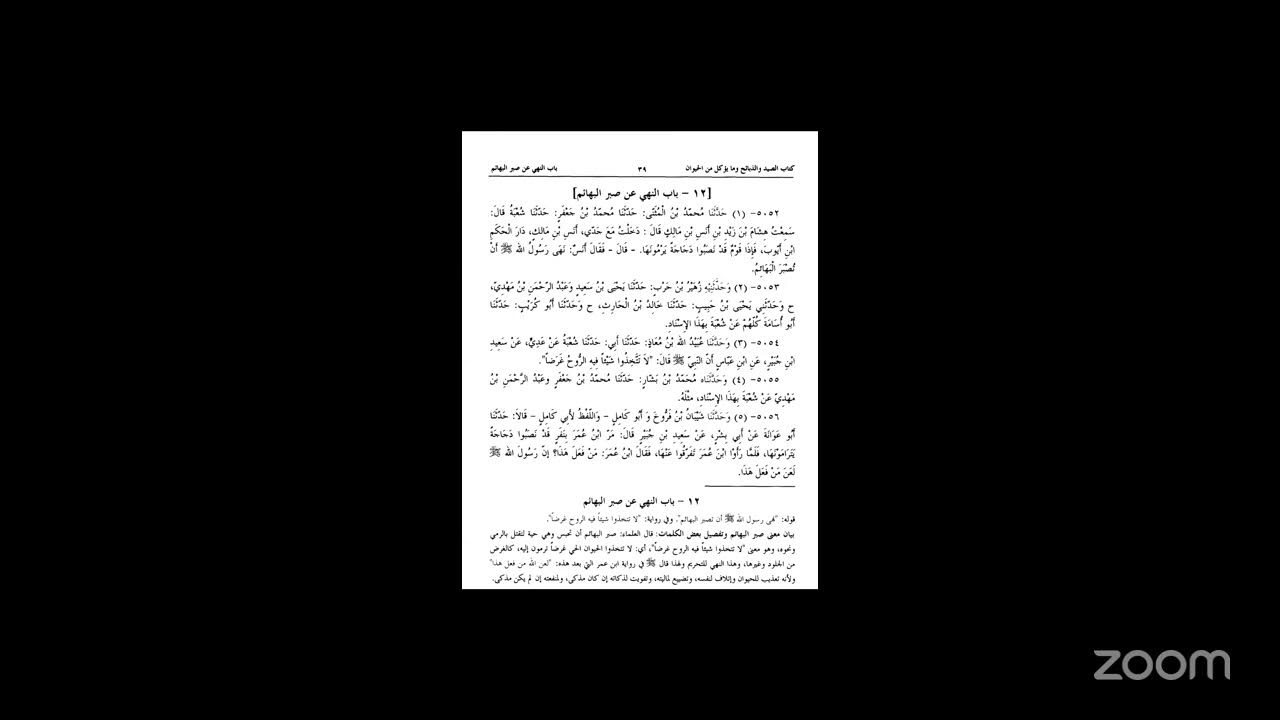 كتاب الصيد والذبائح وما يؤكل من الحيوان ٣٩ باب النهي عن صبر البهائم
[١٢ – باب النهي عن صبر البهائم]
٥٠٥٢- (١) حَدَّثَنَا مُحَمَّدُ بْنُ الْمُثَنَّى: حَدَّثَنَا مُحَمَّدُ بْنُ جَعْفَرٍ: حَدَّثَنَا شُعْبَةُ قَالَ:
سَمِعْتُ هِشَامَ بْنَ زَيْدِ بْنِ أَنَسِ بْنِ مَالِكٍ قَالَ : دَخَلْتُ مَعَ جَدِّي، أَنَسِ بْنِ مَالِكٍ، دَارَ الْحَكَمِ
ابْنِ أَيُّوبَ، فَإِذَا قَوْمٌ قَدْ نَصَبُوا دَجَاجَةً يَرْمُونَهَا. – قَالَ – فَقَالَ أَنَسٌ: نَهَى رَسُولُ الله ﷺ أَنْ
تُصْبَرَ الْبَهَائِمُ.
٥٠٥٣- (٢) وَحَدَّثَنِيهِ زُهَيْرُ بْنُ حَرْبٍ: حَدَّثَنَا يَحْيَى بْنُ سَعِيدٍ وَعَبْدُ الرَّحْمَنِ بْنُ مَهْدِيٍّ،
ح وَحَدَّثَنِي يَحْيَى بْنُ حَبِيبٍ: حَدَّثَنَا خَالِدُ بْنُ الْحَارِثِ، ح وَحَدَّثَنَا أَبُو كُرَيْبٍ: حَدَّثَنَا
أَبُو أُسَامَةَ كُلُّهُمْ عَنْ شُعْبَةَ بِهَذَا الإِسْنَادِ.
٥٠٥٤- (٣) وَحَدَّثَنَا عُبَيْدُ الله بْنُ مُعَاذٍ: حَدَّثَنَا أَبِي: حَدَّثَنَا شُعْبَةُ عَنْ عَدِيٍّ، عَنْ سَعِيدِ
ابْنِ جُبَيْرٍ، عَنِ ابْنِ عَبَّاسٍ أَنَّ النَّبِيَّ ﷺ قَالَ: "لاَ تَتَّخِذُوا شَيْئاً فِيهِ الرُّوحُ غَرَضاً".
٥٠٥٥- (٤) وَحَدَّثَنَاه مُحَمَّدُ بْنُ بَشَّارٍ: حَدَّثَنَا مُحَمَّدُ بْنُ جَعْفَرٍ وعَبْدُ الرَّحْمَنِ بْنُ
مَهْدِيٍّ عَنْ شُعْبَةَ بِهَذَا الإِسْنَادِ، مِثْلَهُ.
٥٠٥٦- (٥) وَحَدَّثَنَا شَيْبَانُ بْنُ فَرُّوخَ وَ أَبُو كَامِلٍ – وَاللَّفْظُ لأَبِي كَامِلٍ – قَالاَ: حَدَّثَنَا
أَبُو عَوَانَةَ عَنْ أَبِي بِشْرٍ، عَنْ سَعِيدِ بْنِ جُبَيْرٍ قَالَ: مَرَّ ابْنُ عُمَرَ بِنَفَرٍ قَدْ نَصَبُوا دَجَاجَةً
يَتَرَامَوْنَهَا، فَلَمَّا رَأَوُا ابْنَ عُمَرَ تَفَرَّقُوا عَنْهَا، فَقَالَ ابْنُ عُمَرَ: مَنْ فَعَلَ هَذَا؟ إِنَّ رَسُولَ الله ﷺ
لَعَنَ مَنْ فَعَلَ هَذَا.
١٢ – باب النهي عن صبر البهائم
قوله: "نهى رسول الله ﷺ أن تصبر البهائم". وفي رواية: "لا تتخذوا شيئاً فيه الروح غرضاً".
بيان معنى صبر البهائم وتفصيل بعض الكلمات: قال العلماء: صبر البهائم أن تحبس وهي حية لتقتل بالرمي
ونحوه، وهو معنى "لا تتخذوا شيئاً فيه الروح غرضاً"، أي: لا تتخذوا الحيوان الحي غرضاً ترمون إليه، كالغرض
من الجلود وغيرها، وهذا النهي للتحريم ولهذا قال ﷺ في رواية ابن عمر التي بعد هذه: "لعن الله من فعل هذا"
ولأنه تعذيب للحيوان وإتلاف لنفسه، وتضييع لماليته، وتفويت لذكاته إن كان مذكى، ولمنفعته إن لم يكن مذكى.
zoom